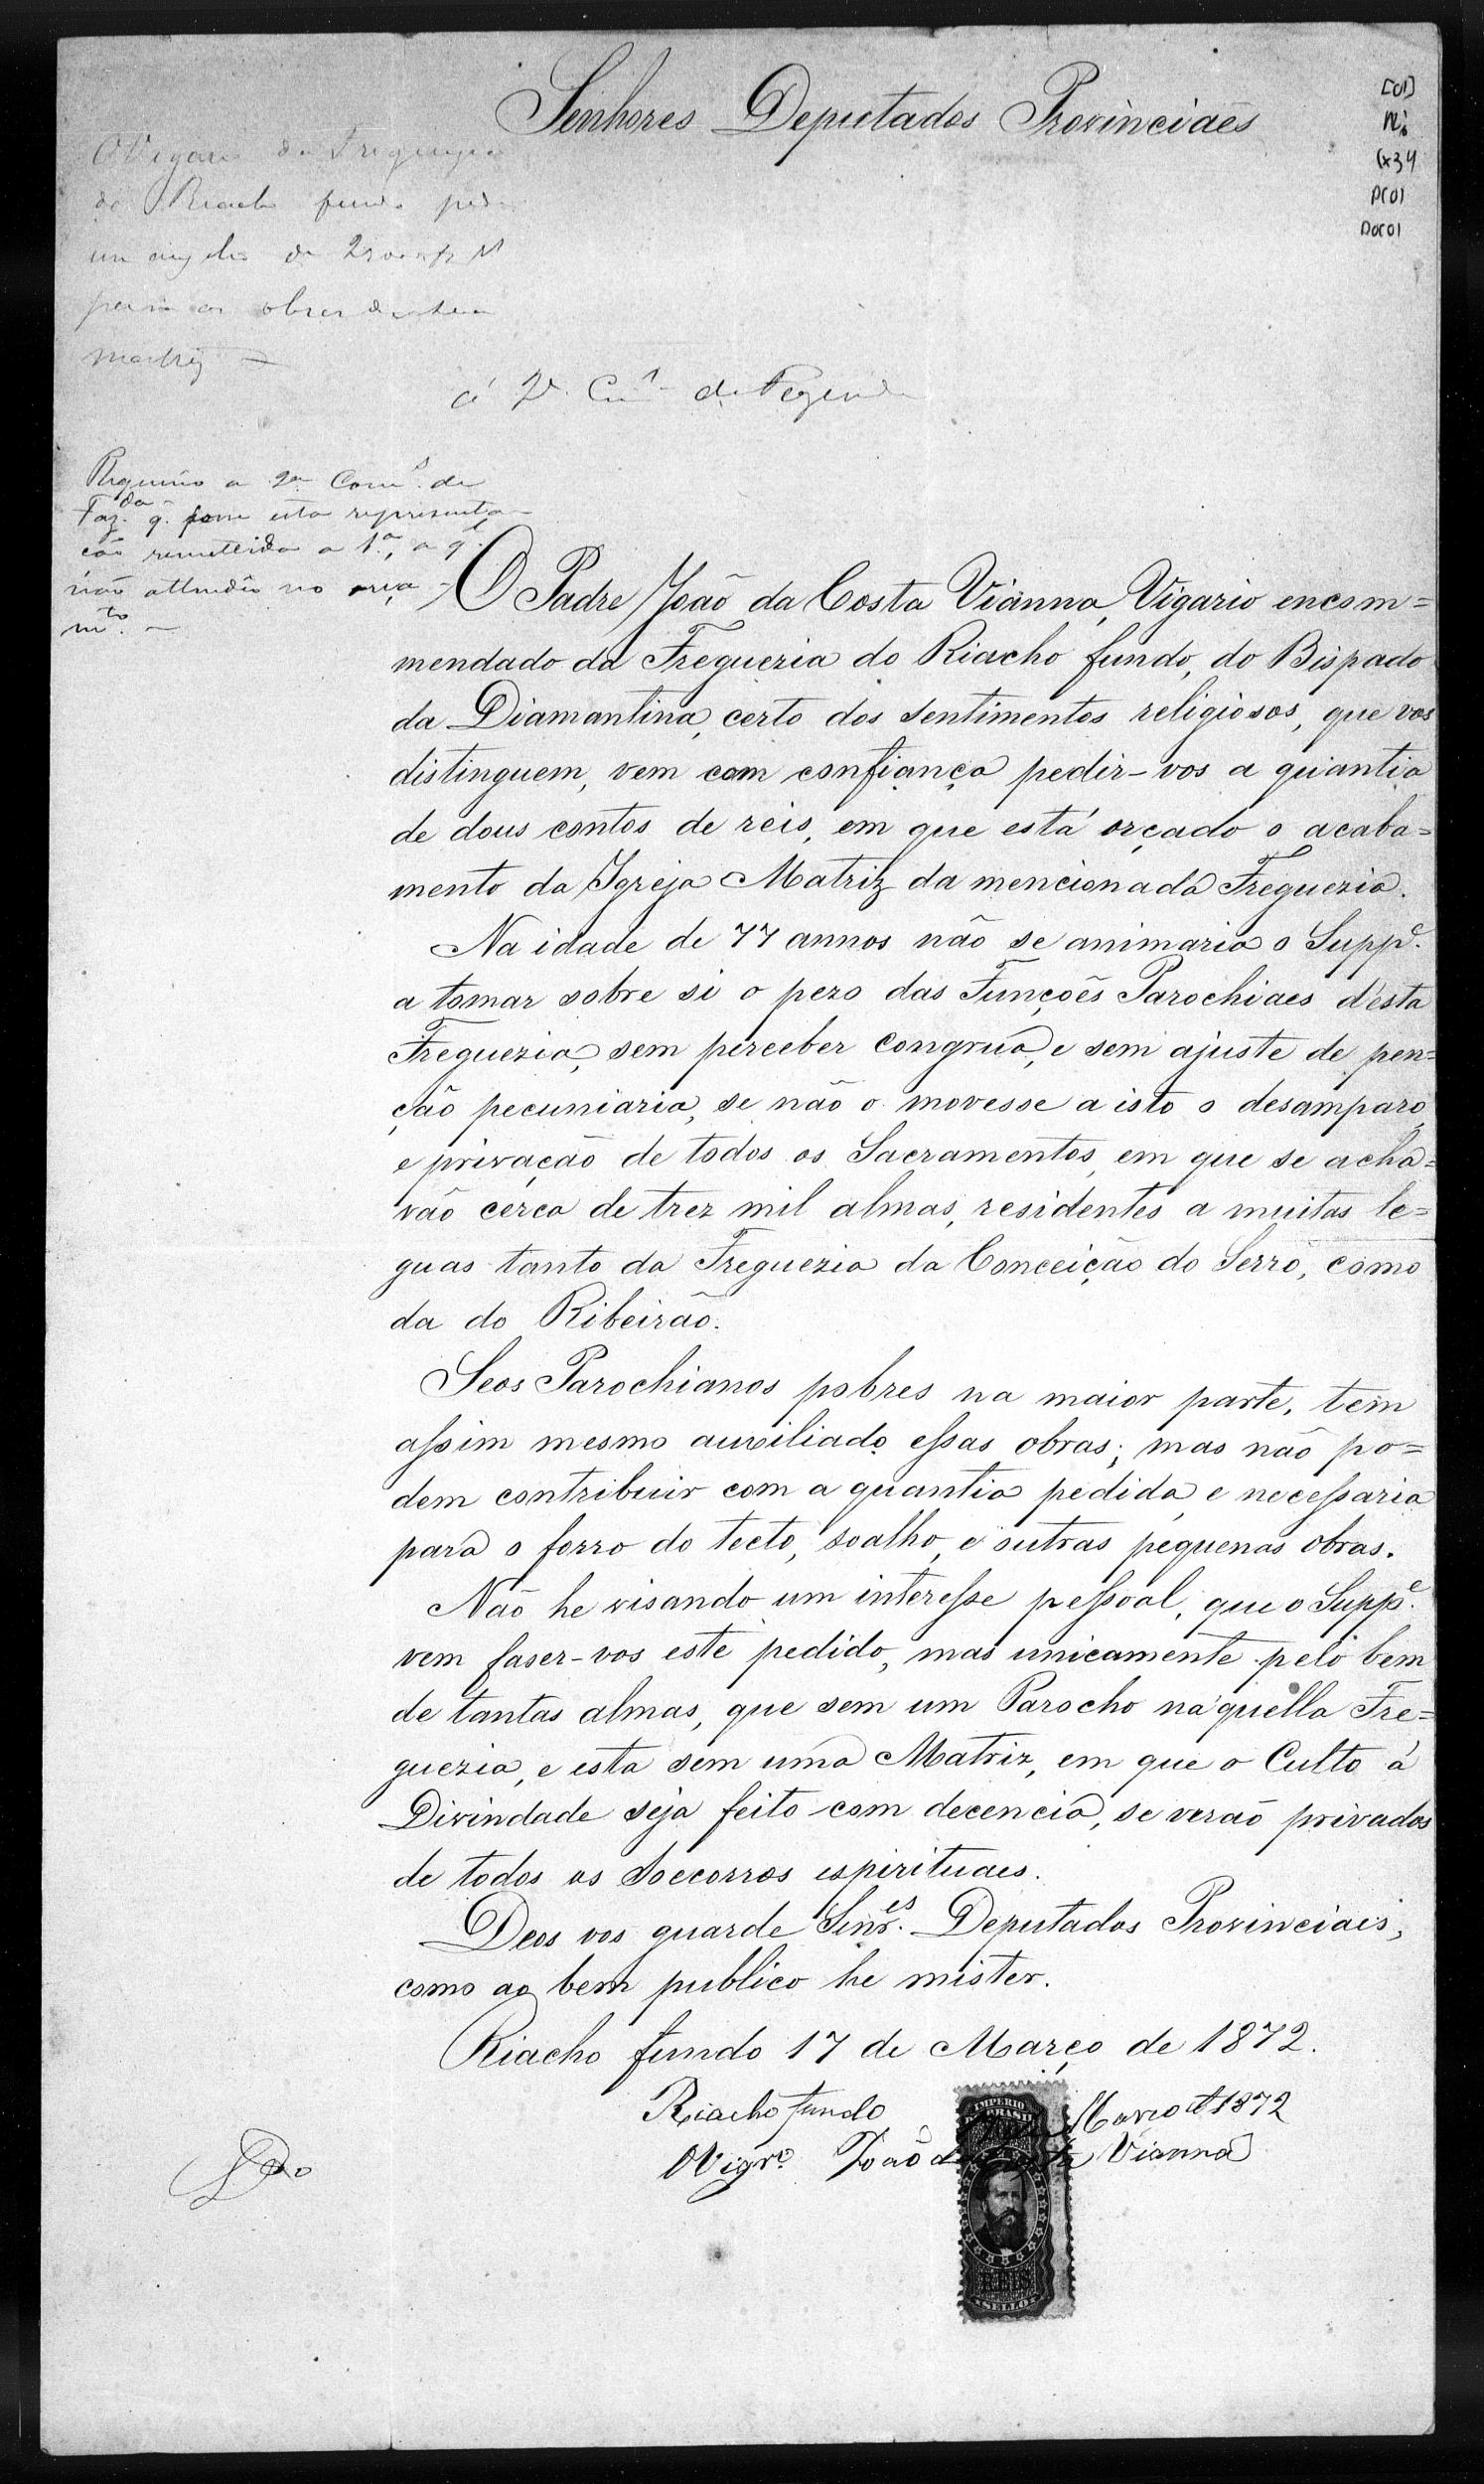 Senhores Deputados Provinciaes
[01]
Cx34
P(01
Doc01
O Vigario da Freguezia
do Riacho fundo pede
um auxilio de
para as obras de sua
matriz =
á 2ª Com. de Fazenda
Requeiro a 2ª Com. de
Faz.da q. esta representa-
ção remettida a 1ª, a q.l
não attendeu no orça-
m.to. —
O Padre João da Costa Vianna, Vigario encom=
mendado da Freguezia do Riacho fundo, do Bispado
da Diamantina, certo dos sentimentos religiosos, que vos
distinguem, vem com confiança pedir-vos a quiantia
de dous contos de reis, em que está orçado o acaba=
mento da Igreja Matriz da mencionada Freguezia.
Na idade de 77 annos não se animaria o Supp.e
a tomar sobre si o pezo das Funções Parochiaes d'esta
Freguezia, sem perceber congrua, e sem ajuste de pen=
ção pecuniaria, se não o movesse a isto o desamparo,
e privação de todos os Sacramentos, em que se acha=
vão cerca de trez mil almas, residentes a muitas le=
guas tanto da Freguezia da Conceição do Serro, como
da do Ribeirão.
Seos Parochianos pobres na maior parte, tem
assim mesmo auxiliado essas obras; mas não po=
dem contribuir com a quantia pedida, e necessaria
para o forro do tecto, soalho, e outras pequenas obras.
Não he visando um interesse pessoal, que o Supp.e
vem faser-vos este pedido, mas unicamente pelo bem
de tantas almas, que sem um Parocho na'quella Fre=
guezia, e esta sem uma Matriz, em que o Culto á
Divindade seja feito com decencia, se verão privados
de todos os Soccorros espirituaes.
Deos vos guarde Snr.es Deputados Provinciaes,
como ao bem publico he mister.
Riacho fundo 17 de Março de 1872.
Riacho fundo Março d 1872
O Vigr.o João da Costa Vianna
IMPERIO
DO BRASIL
REIS
SELLO